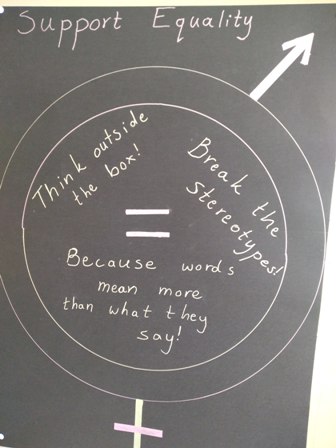 Support Equality
Think outside
the box!
Break the
stereotypes!
=
Because words
mean more
than what they
say!